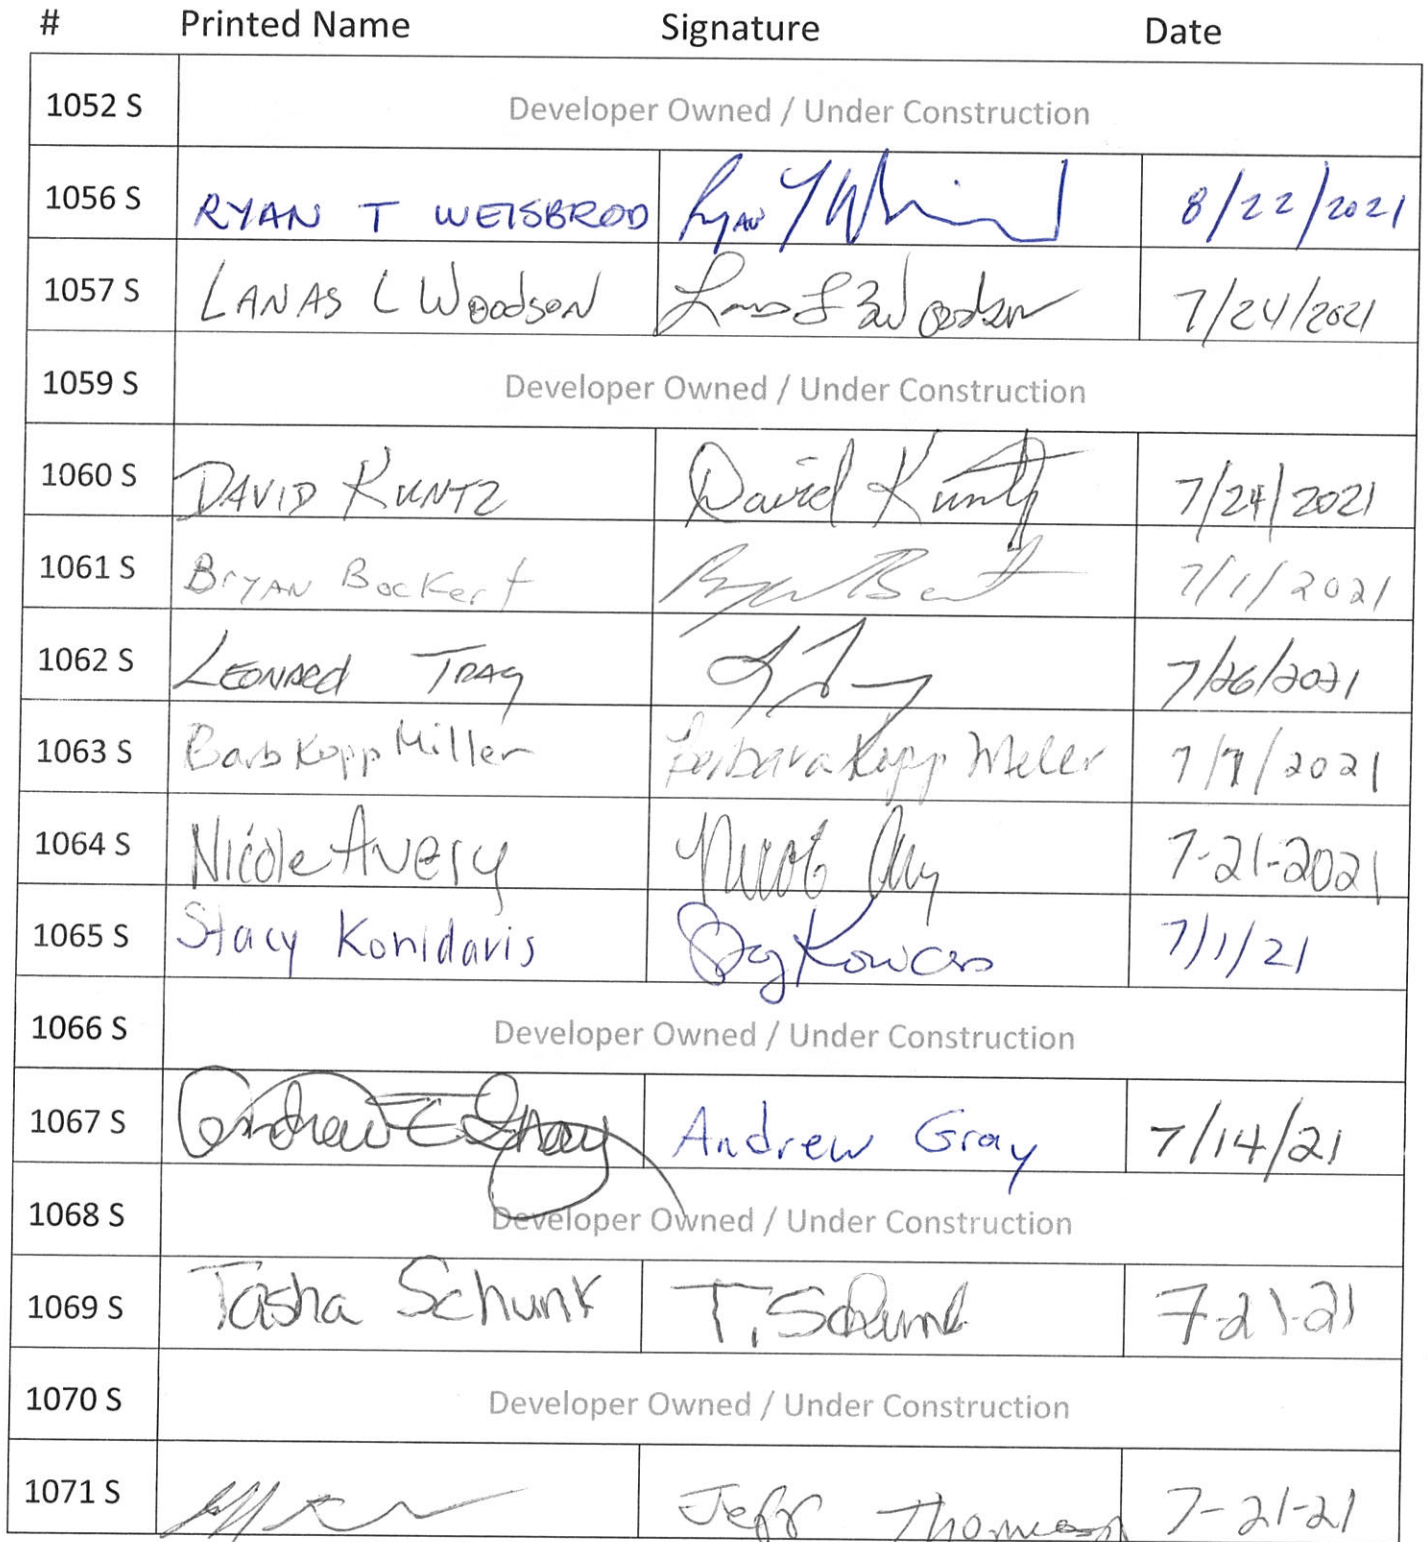 # Printed Name Signature Date
1052 S Developer Owned / Under Construction
1056 S RYAN T WEISBROD Ryan T 8/22/2021
1057 S LANAS L WOODSON Lanas L Woodson 7/24/2021
1059 S Developer Owned / Under Construction
1060 S DAVID KUNTZ David Kuntz 7/24/2021
1061 S BryAN Bockert 7/1/2021
1062 S LEONARD TRAG 7/26/2021
1063 S Barb Kopp Miller Barbara Kopp Miller 7/7/2021
1064 S Nicole Avery Nicole 7-21-2021
1065 S Stacy Konidaris 7/1/21
1066 S Developer Owned / Under Construction
1067 S Andrew E Gray Andrew Gray 7/14/21
1068 S Developer Owned / Under Construction
1069 S Tasha Schunk T. Schunk 7-21-21
1070 S Developer Owned / Under Construction
1071 S Jeff Thomason 7-21-21